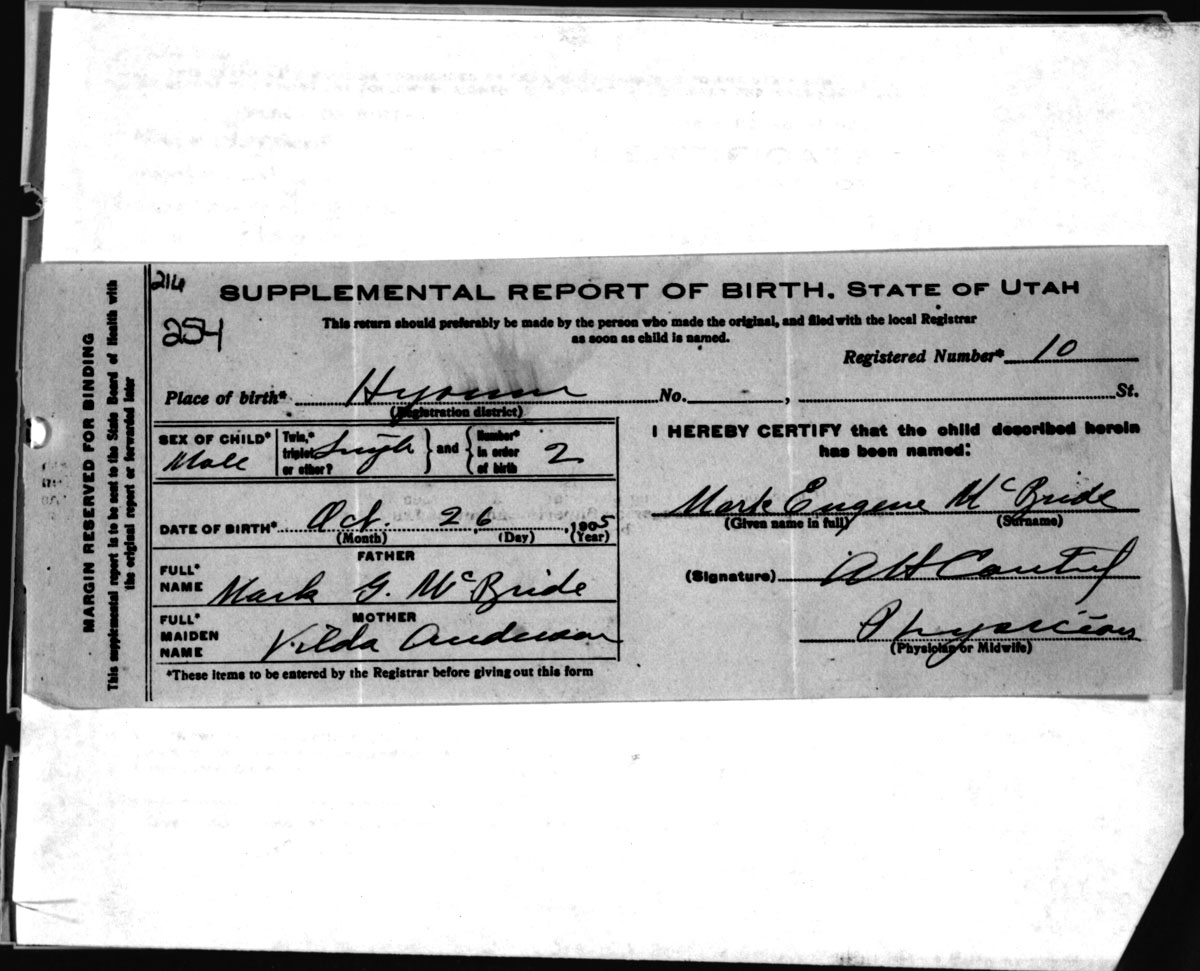 MARGIN RESERVED FOR BINDING
This supplemental report is to be sent to the State Board of Health with
the original report or forwarded later
214
254
SUPPLEMENTAL REPORT OF BIRTH. STATE OF UTAH
This return should preferably be made by the person who made the original, and filed with the local Registrar
as soon as child is named.
Registered Number* 10
Place of birth* Hyrum No. , St.
(Registration district)
SEX OF CHILD* Male
Twin,* triplet or other? Single and Number* in order of birth 2
DATE OF BIRTH* Oct. 26, 1905
(Month) (Day) (Year)
FATHER
FULL* NAME Mark G. McBride
MOTHER
FULL* MAIDEN NAME Vilda Anderson
*These items to be entered by the Registrar before giving out this form
I HEREBY CERTIFY that the child described herein
has been named:
Mark Eugene McBride
(Given name in full) (Surname)
(Signature) A H Cantril
Physician
(Physician or Midwife)